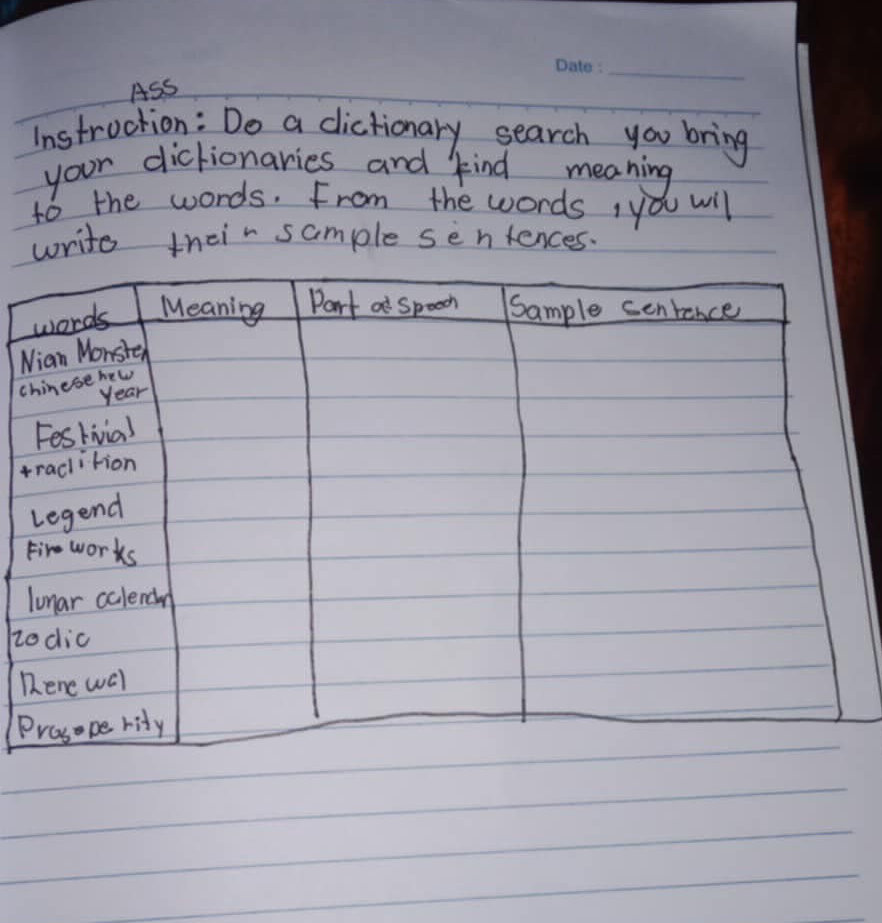 Date :
ASS
Instruction: Do a dictionary search you bring
your dictionaries and find meaning
to the words. From the words, you wil
write their sample sentences.
words Meaning Part of Speech Sample sentence
Nian Monster
chinese new
Year
Festivial
tradition
Legend
Fire works
lunar calendar
zodic
Renewal
Prosoperity